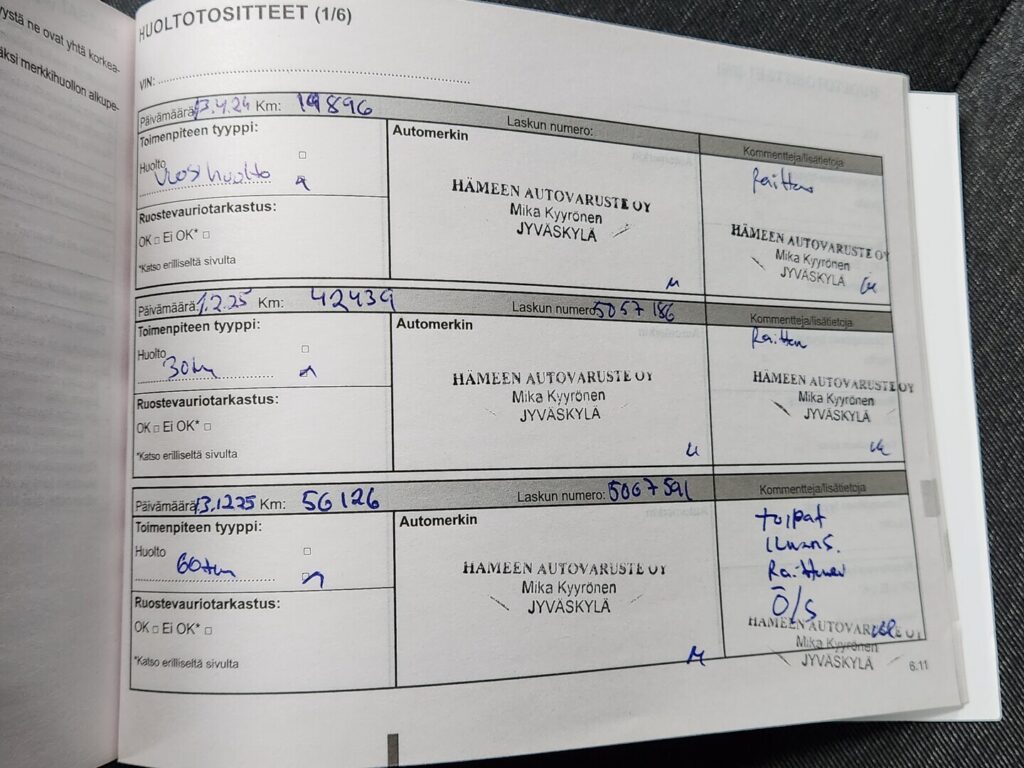 ystä ne ovat yhtä korkea-
äksi merkkihuollon alkupe-
HUOLTOTOSITTEET (1/6)
VIN:
Päivämäärä: 13.4.24 Km: 19896
Laskun numero:
Kommentteja/lisätietoja
Toimenpiteen tyyppi:
Automerkin
Huolto
Vuosihuolto
Ruostevauriotarkastus:
OK □ Ei OK* □
*Katso erilliseltä sivulta
HÄMEEN AUTOVARUSTE OY
Mika Kyyrönen
JYVÄSKYLÄ
Raitten
HÄMEEN AUTOVARUSTE OY
Mika Kyyrönen
JYVÄSKYLÄ
Päivämäärä: 1.2.25 Km: 42439
Laskun numero: 5057186
Kommentteja/lisätietoja
Toimenpiteen tyyppi:
Automerkin
Huolto
30tkm
Ruostevauriotarkastus:
OK □ Ei OK* □
*Katso erilliseltä sivulta
HÄMEEN AUTOVARUSTE OY
Mika Kyyrönen
JYVÄSKYLÄ
Raitten
HÄMEEN AUTOVARUSTE OY
Mika Kyyrönen
JYVÄSKYLÄ
Päivämäärä: 13.1225 Km: 56126
Laskun numero: 5067591
Kommentteja/lisätietoja
Toimenpiteen tyyppi:
Automerkin
Huolto
60tkm
Ruostevauriotarkastus:
OK □ Ei OK* □
*Katso erilliseltä sivulta
HÄMEEN AUTOVARUSTE OY
Mika Kyyrönen
JYVÄSKYLÄ
tulpat
Ilmans.
Raitten
Ö/S
HÄMEEN AUTOVARUSTE OY
Mika Kyyrönen
JYVÄSKYLÄ
6.11